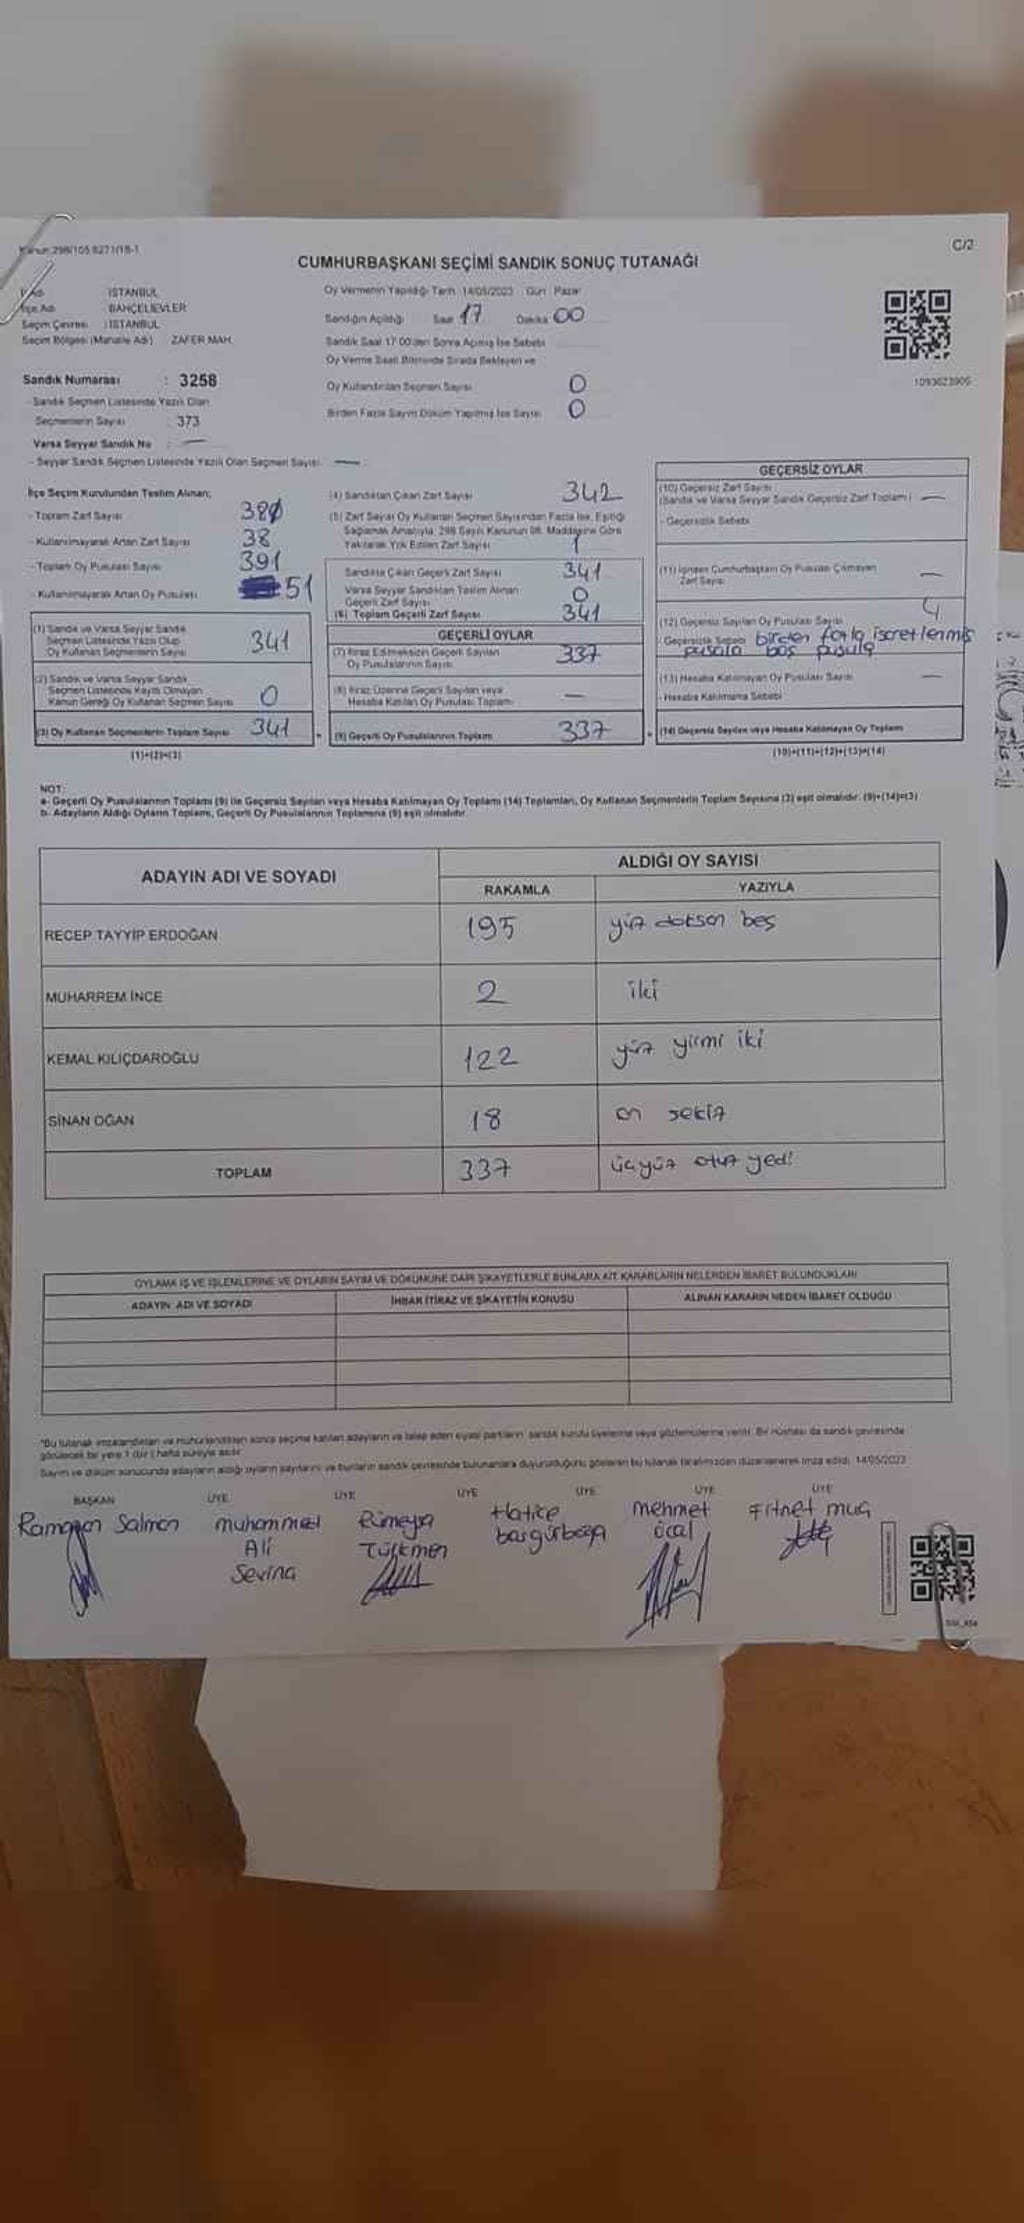 Kanun:298/105 6271/18-1
C/2
CUMHURBAŞKANI SEÇİMİ SANDIK SONUÇ TUTANAĞI
İl Adı : İSTANBUL
İlçe Adı : BAHÇELİEVLER
Seçim Çevresi : İSTANBUL
Seçim Bölgesi (Mahalle Adı) ZAFER MAH.
Sandık Numarası : 3258
- Sandık Seçmen Listesinde Yazılı Olan
Seçmenlerin Sayısı : 373
Varsa Seyyar Sandık No : —
- Seyyar Sandık Seçmen Listesinde Yazılı Olan Seçmen Sayısı: —
Oy Vermenin Yapıldığı Tarih: 14/05/2023 Gün: Pazar
Sandığın Açıldığı Saat 17 Dakika 00
Sandık Saat 17:00'den Sonra Açılmış İse Sebebi
Oy Verme Saati Bitiminde Sırada Bekleyen ve
Oy Kullandırılan Seçmen Sayısı 0
Birden Fazla Sayım Döküm Yapılmış İse Sayısı 0
1093623905
İlçe Seçim Kurulundan Teslim Alınan;
- Toplam Zarf Sayısı 380
- Kullanılmayarak Artan Zarf Sayısı 38
- Toplam Oy Pusulası Sayısı 391
- Kullanılmayarak Artan Oy Pusulası 51
(1) Sandık ve Varsa Seyyar Sandık
Seçmen Listesinde Yazılı Olup
Oy Kullanan Seçmenlerin Sayısı 341
(2) Sandık ve Varsa Seyyar Sandık
Seçmen Listesinde Kayıtlı Olmayan
Kanun Gereği Oy Kullanan Seçmen Sayısı 0
(3) Oy Kullanan Seçmenlerin Toplam Sayısı 341
(1)+(2)=(3)
(4) Sandıktan Çıkan Zarf Sayısı 342
(5) Zarf Sayısı Oy Kullanan Seçmen Sayısından Fazla İse, Eşitliği
Sağlamak Amacıyla, 298 Sayılı Kanunun 98. Maddesine Göre
Yakılarak Yok Edilen Zarf Sayısı 1
Sandıkta Çıkan Geçerli Zarf Sayısı 341
Varsa Seyyar Sandıktan Teslim Alınan
Geçerli Zarf Sayısı 0
(6) Toplam Geçerli Zarf Sayısı 341
GEÇERLİ OYLAR
(7) İtiraz Edilmeksizin Geçerli Sayılan
Oy Pusulalarının Sayısı 337
(8) İtiraz Üzerine Geçerli Sayılan veya
Hesaba Katılan Oy Pusulası Toplamı —
(9) Geçerli Oy Pusulalarının Toplamı 337
GEÇERSİZ OYLAR
(10) Geçersiz Zarf Sayısı
(Sandık ve Varsa Seyyar Sandık Geçersiz Zarf Toplamı) —
- Geçersizlik Sebebi
(11) İçinden Cumhurbaşkanı Oy Pusulası Çıkmayan
Zarf Sayısı —
(12) Geçersiz Sayılan Oy Pusulası Sayısı 4
- Geçersizlik Sebebi birden fazla işaretlenmiş
pusula boş pusula
(13) Hesaba Katılmayan Oy Pusulası Sayısı —
- Hesaba Katılmama Sebebi
(14) Geçersiz Sayılan veya Hesaba Katılmayan Oy Toplamı
(10)+(11)+(12)+(13)=(14)
NOT:
a- Geçerli Oy Pusulalarının Toplamı (9) ile Geçersiz Sayılan veya Hesaba Katılmayan Oy Toplamı (14) Toplamları, Oy Kullanan Seçmenlerin Toplam Sayısına (3) eşit olmalıdır. (9)+(14)=(3)
b- Adayların Aldığı Oyların Toplamı, Geçerli Oy Pusulalarının Toplamına (9) eşit olmalıdır.
ADAYIN ADI VE SOYADI
ALDIĞI OY SAYISI
RAKAMLA YAZIYLA
RECEP TAYYİP ERDOĞAN 195 yüz doksan beş
MUHARREM İNCE 2 iki
KEMAL KILIÇDAROĞLU 122 yüz yirmi iki
SİNAN OĞAN 18 on sekiz
TOPLAM 337 üçyüz otuz yedi
OYLAMA İŞ VE İŞLEMLERİNE VE OYLARIN SAYIM VE DÖKÜMÜNE DAİR ŞİKAYETLERLE BUNLARA AİT KARARLARIN NELERDEN İBARET BULUNDUKLARI
ADAYIN ADI VE SOYADI İHBAR İTİRAZ VE ŞİKAYETİN KONUSU ALINAN KARARIN NEDEN İBARET OLDUĞU
"Bu tutanak imzalandıktan ve mühürlendikten sonra seçime katılan adayların ve talep eden siyasi partilerin sandık kurulu üyelerine veya gözlemcilerine verilir. Bir nüshası da sandık çevresinde
görülecek bir yere 1 (bir) hafta süreyle asılır.
Sayım ve döküm sonucunda adayların aldığı oyların sayılarını ve bunların sandık çevresinde bulunanlara duyurulduğunu gösteren bu tutanak tarafımızdan düzenlenerek imza edildi. 14/05/2023
BAŞKAN ÜYE ÜYE ÜYE ÜYE ÜYE ÜYE
Ramazan Salman
muhammed
Ali
Sevinç
Rümeysa
Türkmen
Hatice
mehmet
öcal
Fitnet